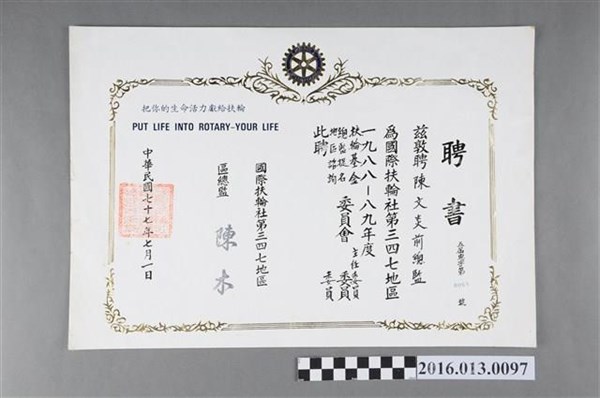 把你的生命活力獻給扶輪
PUT LIFE INTO ROTARY-YOUR LIFE
聘書
茲敦聘 陳文炎前總監
為國際扶輪社第三四七地區
一九八八-八九年度
扶輪基金
總監提名
地區諮詢
委員會
主任委員
委員
委員
此聘
國際扶輪社第三四七地區
區總監 陳木
中華民國七十七年七月一日
號
2016.013.0097